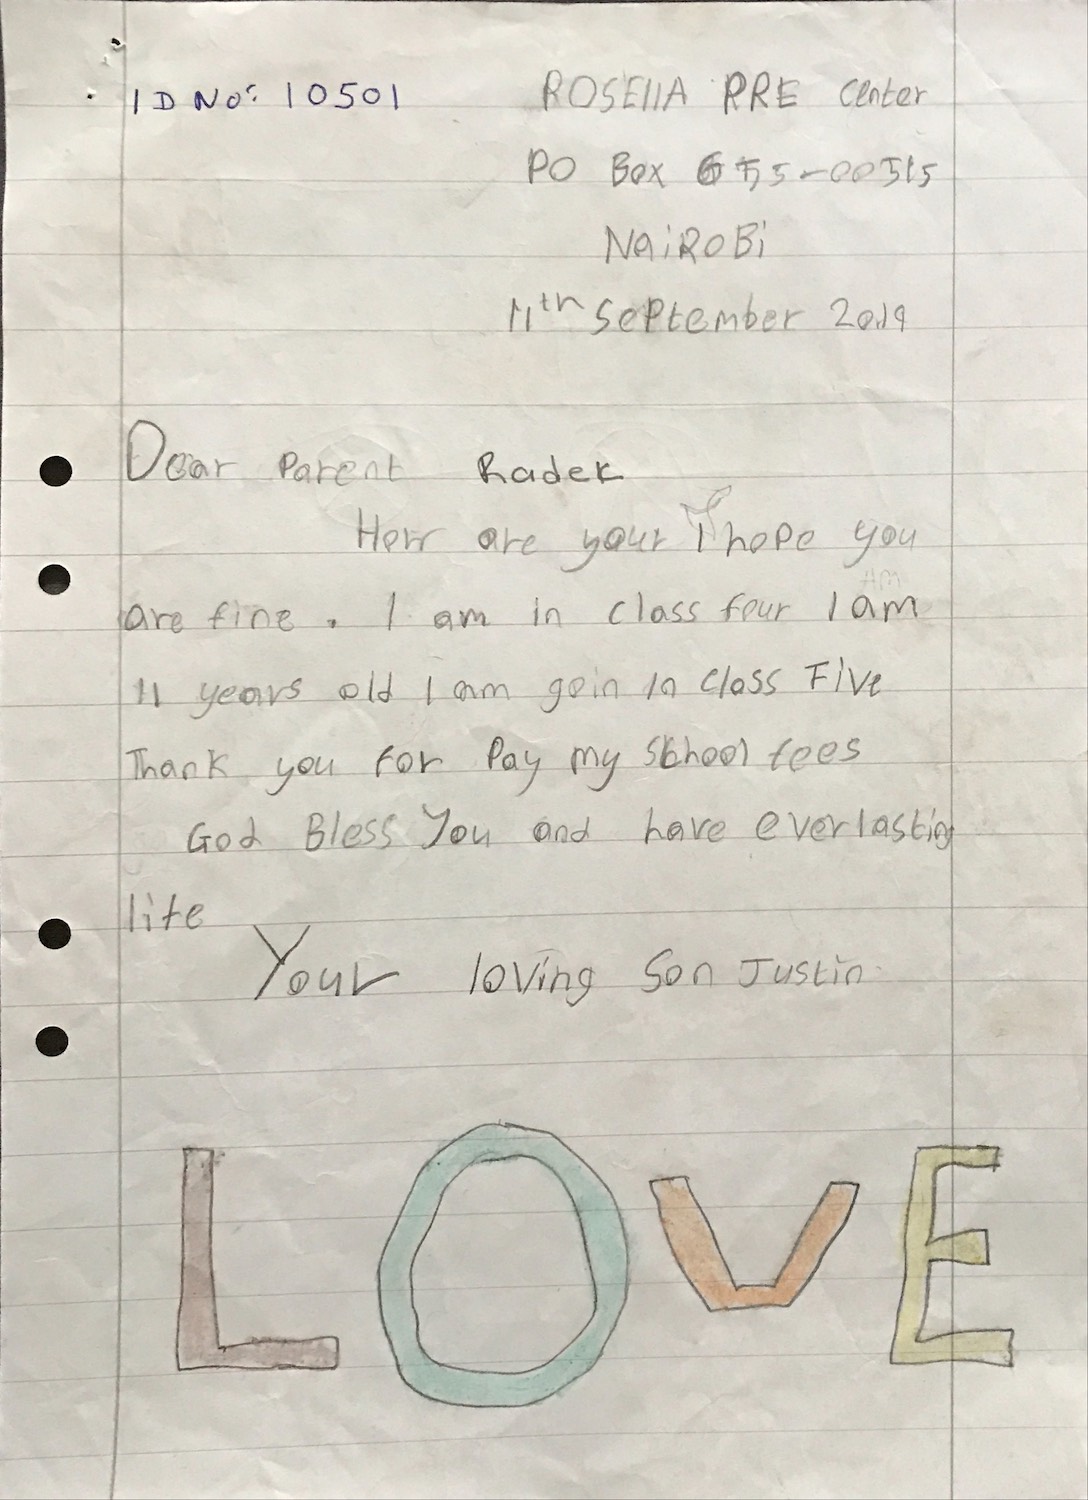 ID No: 10501
ROSEllA PRE Center
PO Box 655-00515
NaiROBi
11th SePtember 2019
Dear Parent Radek
How are your I hope you
are fine. I am in class four I am
11 years old I am goin in class Five
Thank you for Pay my School fees
God Bless You and have everlasting
life
Your loving Son Justin
LOVE